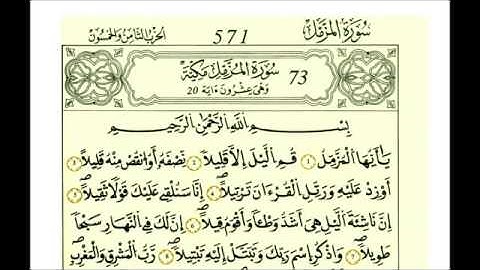 سُورَةُ الْمُزَّمِّلِ 571 الحِزْبُ الثَّامِنُ وَالْخَمْسُونَ
73 سُورَةُ الْمُزَّمِّلِ مَكِّيَّةٌ
وَهْيَ عِشْرُونَ ءَايَةً 20
بِسْمِ اللَّهِ الرَّحْمَٰنِ الرَّحِيمِ
يَٰأَيُّهَا الْمُزَّمِّلُ 1 قُمِ الَيْلَ إِلَّا قَلِيلاً 2 نِّصْفَهُ أَوُ انقُصْ مِنْهُ قَلِيلاً 3
أَوْ زِدْ عَلَيْهِ وَرَتِّلِ الْقُرْءَانَ تَرْتِيلاً 4 إِنَّا سَنُلْقِي عَلَيْكَ قَوْلاً ثَقِيلاً 5
إِنَّ نَاشِئَةَ الَيْلِ هِيَ أَشَدُّ وَطْـٔاً وَأَقْوَمُ قِيلاً 6 إِنَّ لَكَ فِي النَّهَارِ سَبْحاً
طَوِيلاً 7 وَاذْكُرِ اِسْمَ رَبِّكَ وَتَبَتَّلْ إِلَيْهِ تَبْتِيلاً 8 رَّبُّ الْمَشْرِقِ وَالْمَغْرِبِ